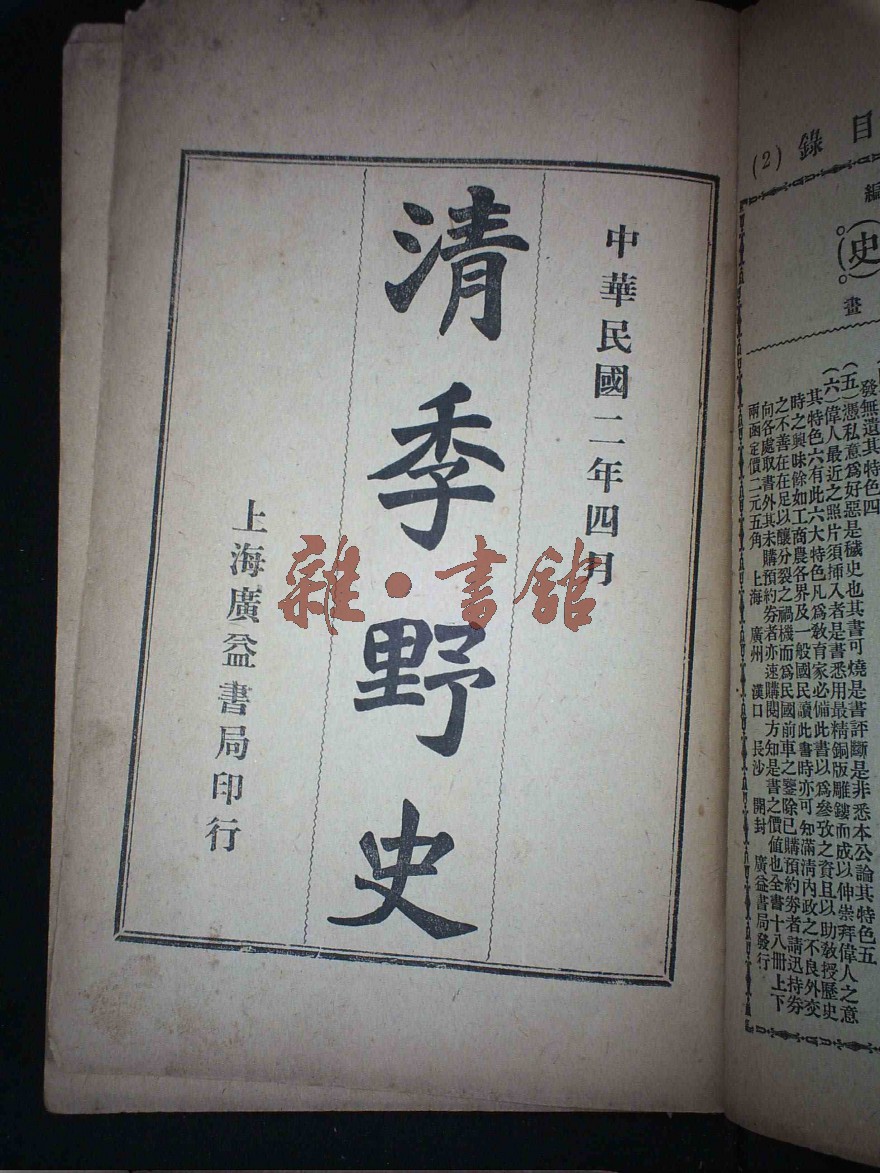 目錄 (2)
編
史
畫
發無遺其特色四
(五)憑私意爲好惡是穢史也其書可燒是書評斷是非悉本公論其特色五
(六)偉人最近之照片須揷入者是書悉用最精銅版雕鏤而成以伸崇拜偉人之意
其特色六有此六大特色凡爲敎育家必備此書以爲參攷之資且以助敎授歷史
時之興味餘如工商農各界及一般國民讀此書時亦可知滿淸內政之不良外交
之不善在在足以釀分裂之禍機而爲民國前車之鑒除已購預約券者請迅持券
向各處取書外其未購預約券者亦速購閱方知是書之價値也全書十八冊上下
兩函定價二元五角 上海 廣州 漢口 長沙 開封 廣益書局發行
中華民國二年四月
清季野史
上海廣益書局印行
雜·書館